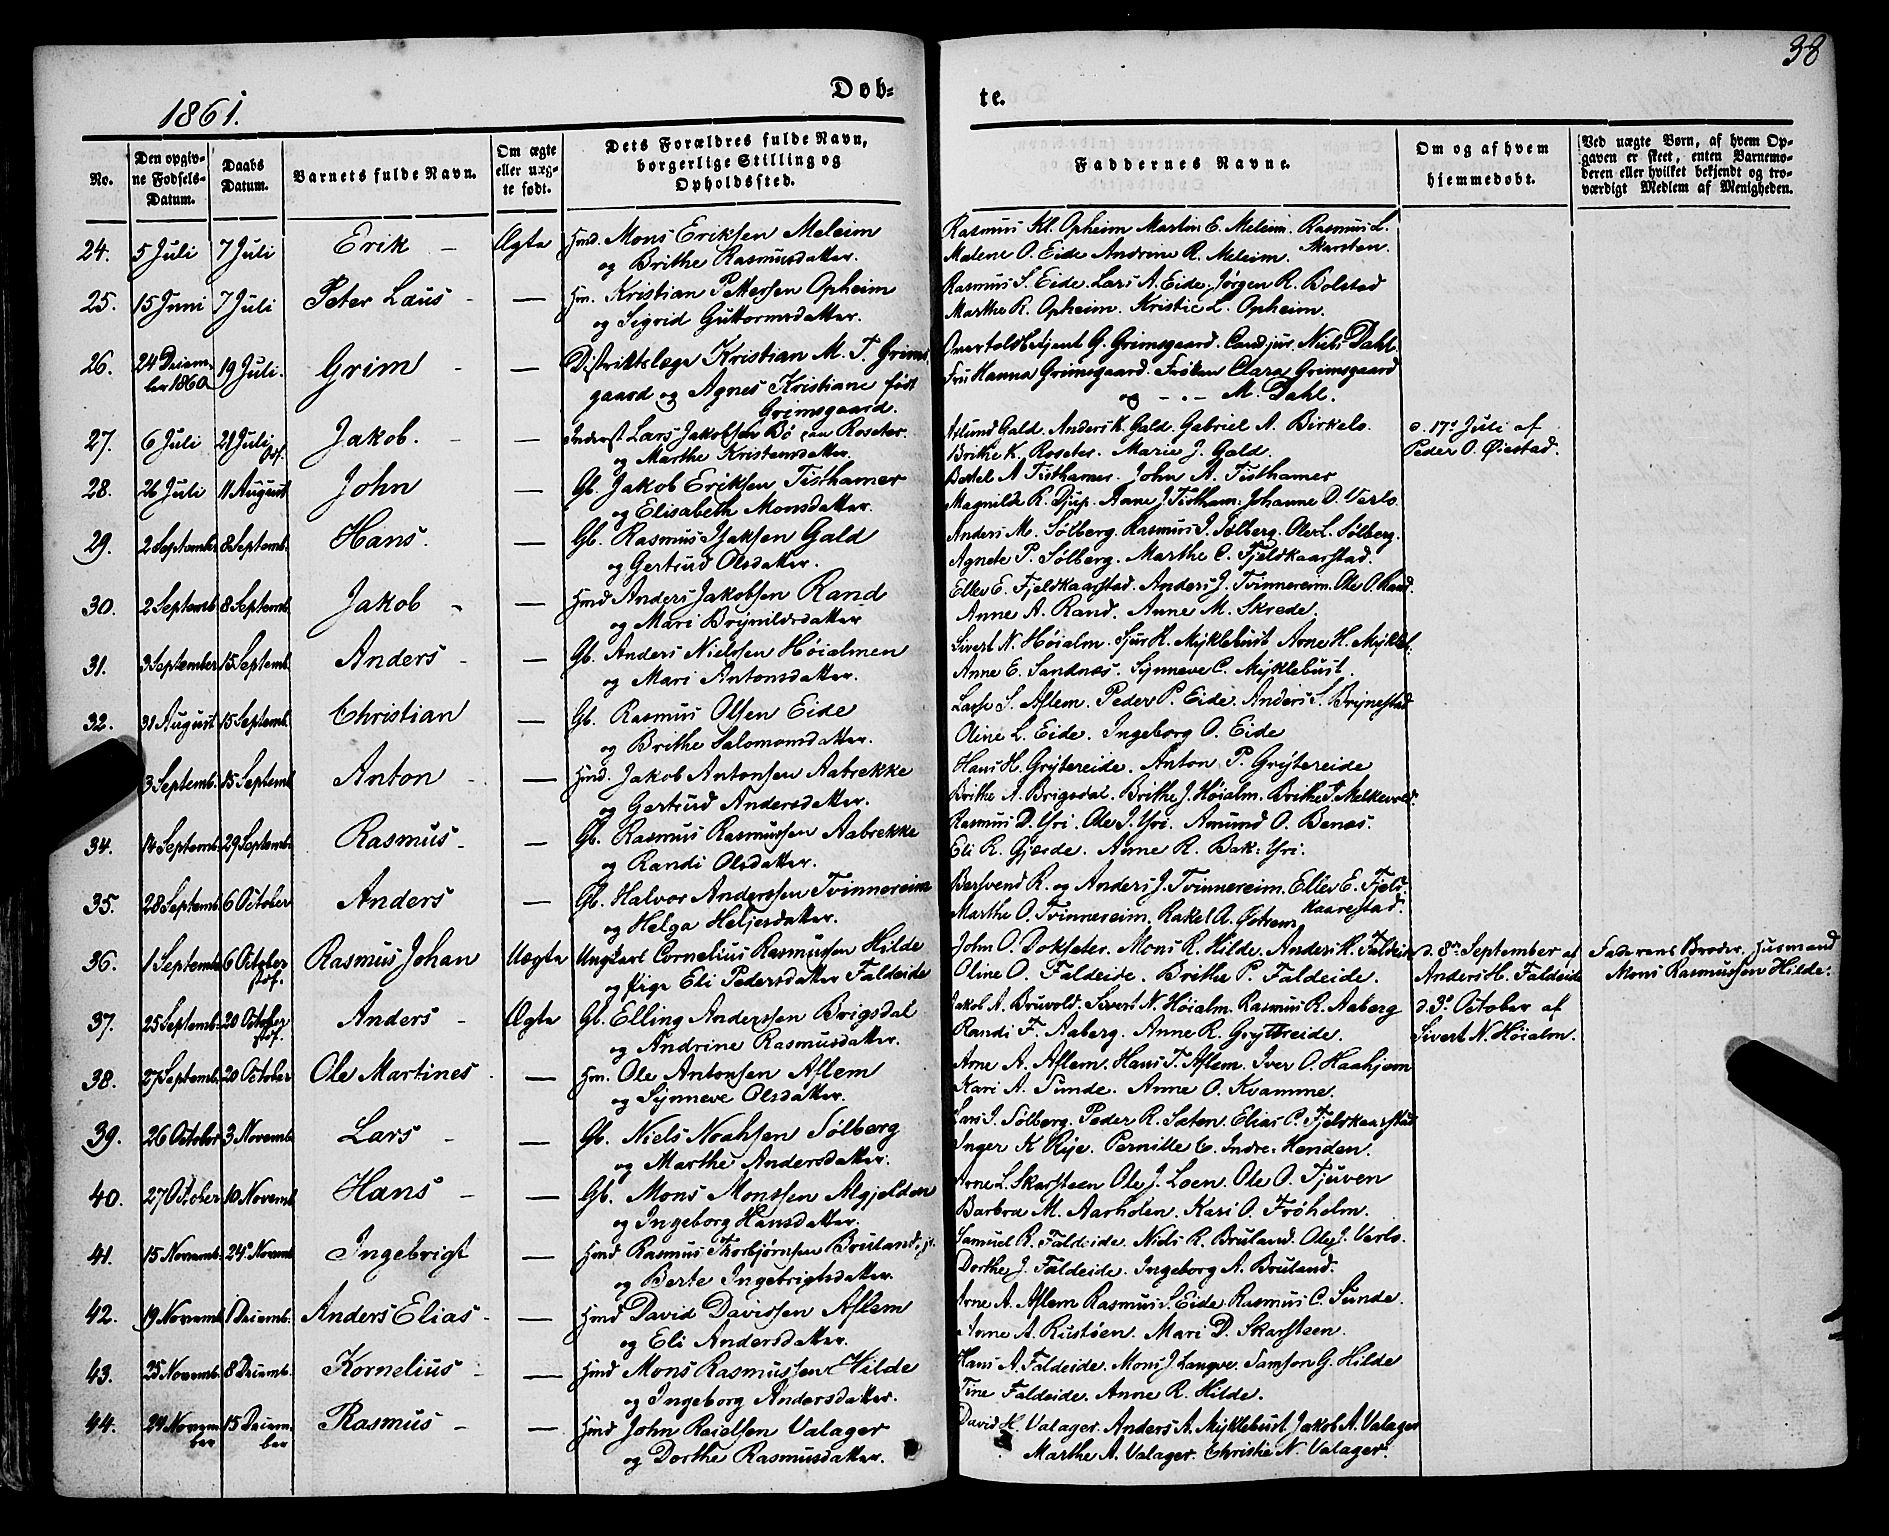 38
1861.
Døb-
te.
No.
Den opgiv-
ne Fødsels-
Datum.
Daabs
Datum.
Barnets fulde Navn.
Om ægte
eller uæg-
te født.
Dets Forældres fulde Navn,
borgerlige Stilling og
Opholdssted.
Faddernes Navne.
Om og af hvem
hjemmedøbt.
Ved uægte Børn, af hvem Op-
gaven er skeet, enten Barnemo-
deren eller hvilket bekjendt og tro-
værdigt Medlem af Menigheden.
24. 5 Juli 7 Juli Erik - Ægte Hmd. Mons Eriksen Meleim
og Brithe Rasmusdatter.
Rasmus Kl. Opheim Martin E. Meleim. Rasmus L.
Skarsten.
Malene O. Eide Andrine R. Meleim.
25. 15 Juni 7 Juli Peter Laus - — Hm. Kristian Pettersen Opheim
og Sigrid Guttormsdatter.
Rasmus S. Eide. Lars A. Eide. Jørgen R. Bolstad
Marthe R. Opheim. Kristie L. Opheim.
26. 24 Decem-
ber 1860 19 Juli. Grim - — Distriktslæge Kristian M. T. Grims-
gaard og Agnes Kristiane født
Grimsgaard.
G. Grimsgaard. Cand jur. Niels Dahl.
Fru Hanna Grimsgaard. Frøken Clara Grimsgaard
og - „ - M. Dahl.
27. 6 Juli 21 Juli Jakob. - — Inderst Lars Jakobsen Bø Roseter.
og Marthe Kristensdatter.
Gald. Anders K. Gald. Gabriel A. Birkelo.
Brithe K. Roseter. Marie J. Gald.
d. 17de Juli af
Peder O. Øiestad.
28. 26 Juli 11 August John — Gb. Jakob Eriksen Tisthamer
og Elisabeth Monsdatter.
Bertel A Tisthamer. John A. Tisthamer
Magnilde R. Djup. Anne J. Tistham. Johanne D. Verlo.
29. 2 September 8 Septemb. Hans. — Gb. Rasmus Isaksen Gald
og Gertrud Olsdatter.
Anders M. Sølberg. Rasmus J. Sølberg. Ole L. Sølberg.
Agnete P. Sølberg. Marthe C. Fjeldkaarstad.
30. 2 Septemb. 8 Septemb. Jakob - — Hmd Anders Jakobsen Rand
og Mari Brynildsdatter
Ellev E. Fjeldkaarstad. Anders J. Tvinnereim. Ole O. Rand.
Anne A. Rand. Anne M. Skrede.
31. 3 September 15 Septemb. Anders - — Gb. Anders Nielssen Høialmen
og Mari Antonsdatter.
Sivert N. Høialm. Sjur R. Myklebust Arne H. Mykleb.
Anne E. Sandnæs. Synneve C. Myklebust.
32. 31 August 15 Septemb. Christian — Gb. Rasmus Olsen Eide
og Brithe Salomonsdatter.
Lasse S. Aflem. Peder P. Eide. Anders S. Brynestad
Oline L. Eide. Ingeborg O. Eide
3 Septemb. 15 Septemb Anton - — Hmd. Jakob Antonsen Aabrekke
og Gertrud Andersdatter.
Hans H. Grytereide. Anton P. Grytereide
Brithe A. Brigsdal. Brithe J. Høialm. Brithe J. Melkevold.
34. 14 Septemb. 29 Septemb. Rasmus - — Gb. Rasmus Rasmussen Aabrekke
og Randi Olsdatter.
Rasmus D. Yri. Ole J. Yri. Amund O. Benæs.
Eli R. Gjærde. Anne R. Bak: Yri.
35. 28 Septemb. 6 October Anders — Gb. Halvor Anderssen Tvinnereim
og Helga Heljesdatter.
Bersvend R. og Anders J. Tvinnereim. Ellev E. Fjeld-
kaarestad.
Marthe O. Tvinnereim. Rakel A. Østrem
36. 1 Septemb 6 October Rasmus Johan Uægte Ungkarl Cornelius Rasmussen Hilde
og Pige Eli Pedersdatter Faldeide
John O. Dokseter. Mons R. Hilde. Anders H. Faldeide
Oline O. Faldeide. Brithe P. Faldeide.
d. 8de September af
Anders H. Faldeide
Faderens Broder, Husmand
Mons Rasmussen Hilde.
37. 25 Septemb. 20 October Anders - Ægte Gb. Elling Anderssen Brigsdal
og Andrine Rasmusdatter.
Jakob A. Bruvold. Sivert N. Høialm. Rasmus R. Aaberg
Randi F. Aaberg. Anne R. Grytereide.
d. 3de October af
Sivert N. Høialm.
38. 27 Septemb. 20 October Ole Martines — Hm. Ole Antonsen Aflem
og Synneve Olsdatter.
Arne A. Aflem. Hans T. Aflem. Iver O. Haahjem
Kari A. Sunde. Anne O. Kvamme.
39. 26 October 3 Novemb. Lars - — Gb. Niels Noahsen Sølberg
og Marthe Andersdatter.
Lars J. Sølberg. Peder R. Sæten. Elias C. Fjeldkaarstad
Inger K Rye. Pernille C. Indre-Henden.
40. 27 October 10 Novemb Hans - — Gb. Mons Monssen Algjelden
og Ingeborg Hansdatter.
Arne L. Skarsteen Ole J. Loen. Ole O. Tjuven
Barbra M. Aarholen. Kari O. Frøholm.
41. 15 Novemb. 24 Novemb Ingebrigt — Hmd Rasmus Thorbjørnsen Bruland
og Berte Ingebrigtsdatter.
Samuel R. Faldeide. Niels R. Bruland. Ole J. Verlo.
Dorthe J. Faldeide. Ingeborg A. Bruland.
42. 19 Novemb. 1 Decemb. Anders Elias - — Hmd David Davidsen Aflem
og Eli Andersdatter.
Arne A. Aflem Rasmus S. Eide. Rasmus C. Sunde.
Anne A. Rustøen. Mari D. Skarsteen.
43. 25 Novemb. 8 Decemb. Kornelius - — Hmd Mons Rasmussen Hilde
og Ingeborg Andersdatter.
Hans A. Faldeide. Mons J. Langve. Samson G. Hilde
Tine Faldeide. Anne R. Hilde.
44. 24 Novem-
ber 15 Decem-
ber Rasmus - — Hmd John Roielsen Valager
og Dorthe Rasmusdatter.
David H. Valager. Anders A. Myklebust. Jakob A. Valager
Marthe A. Valager. Christie N. Valager.